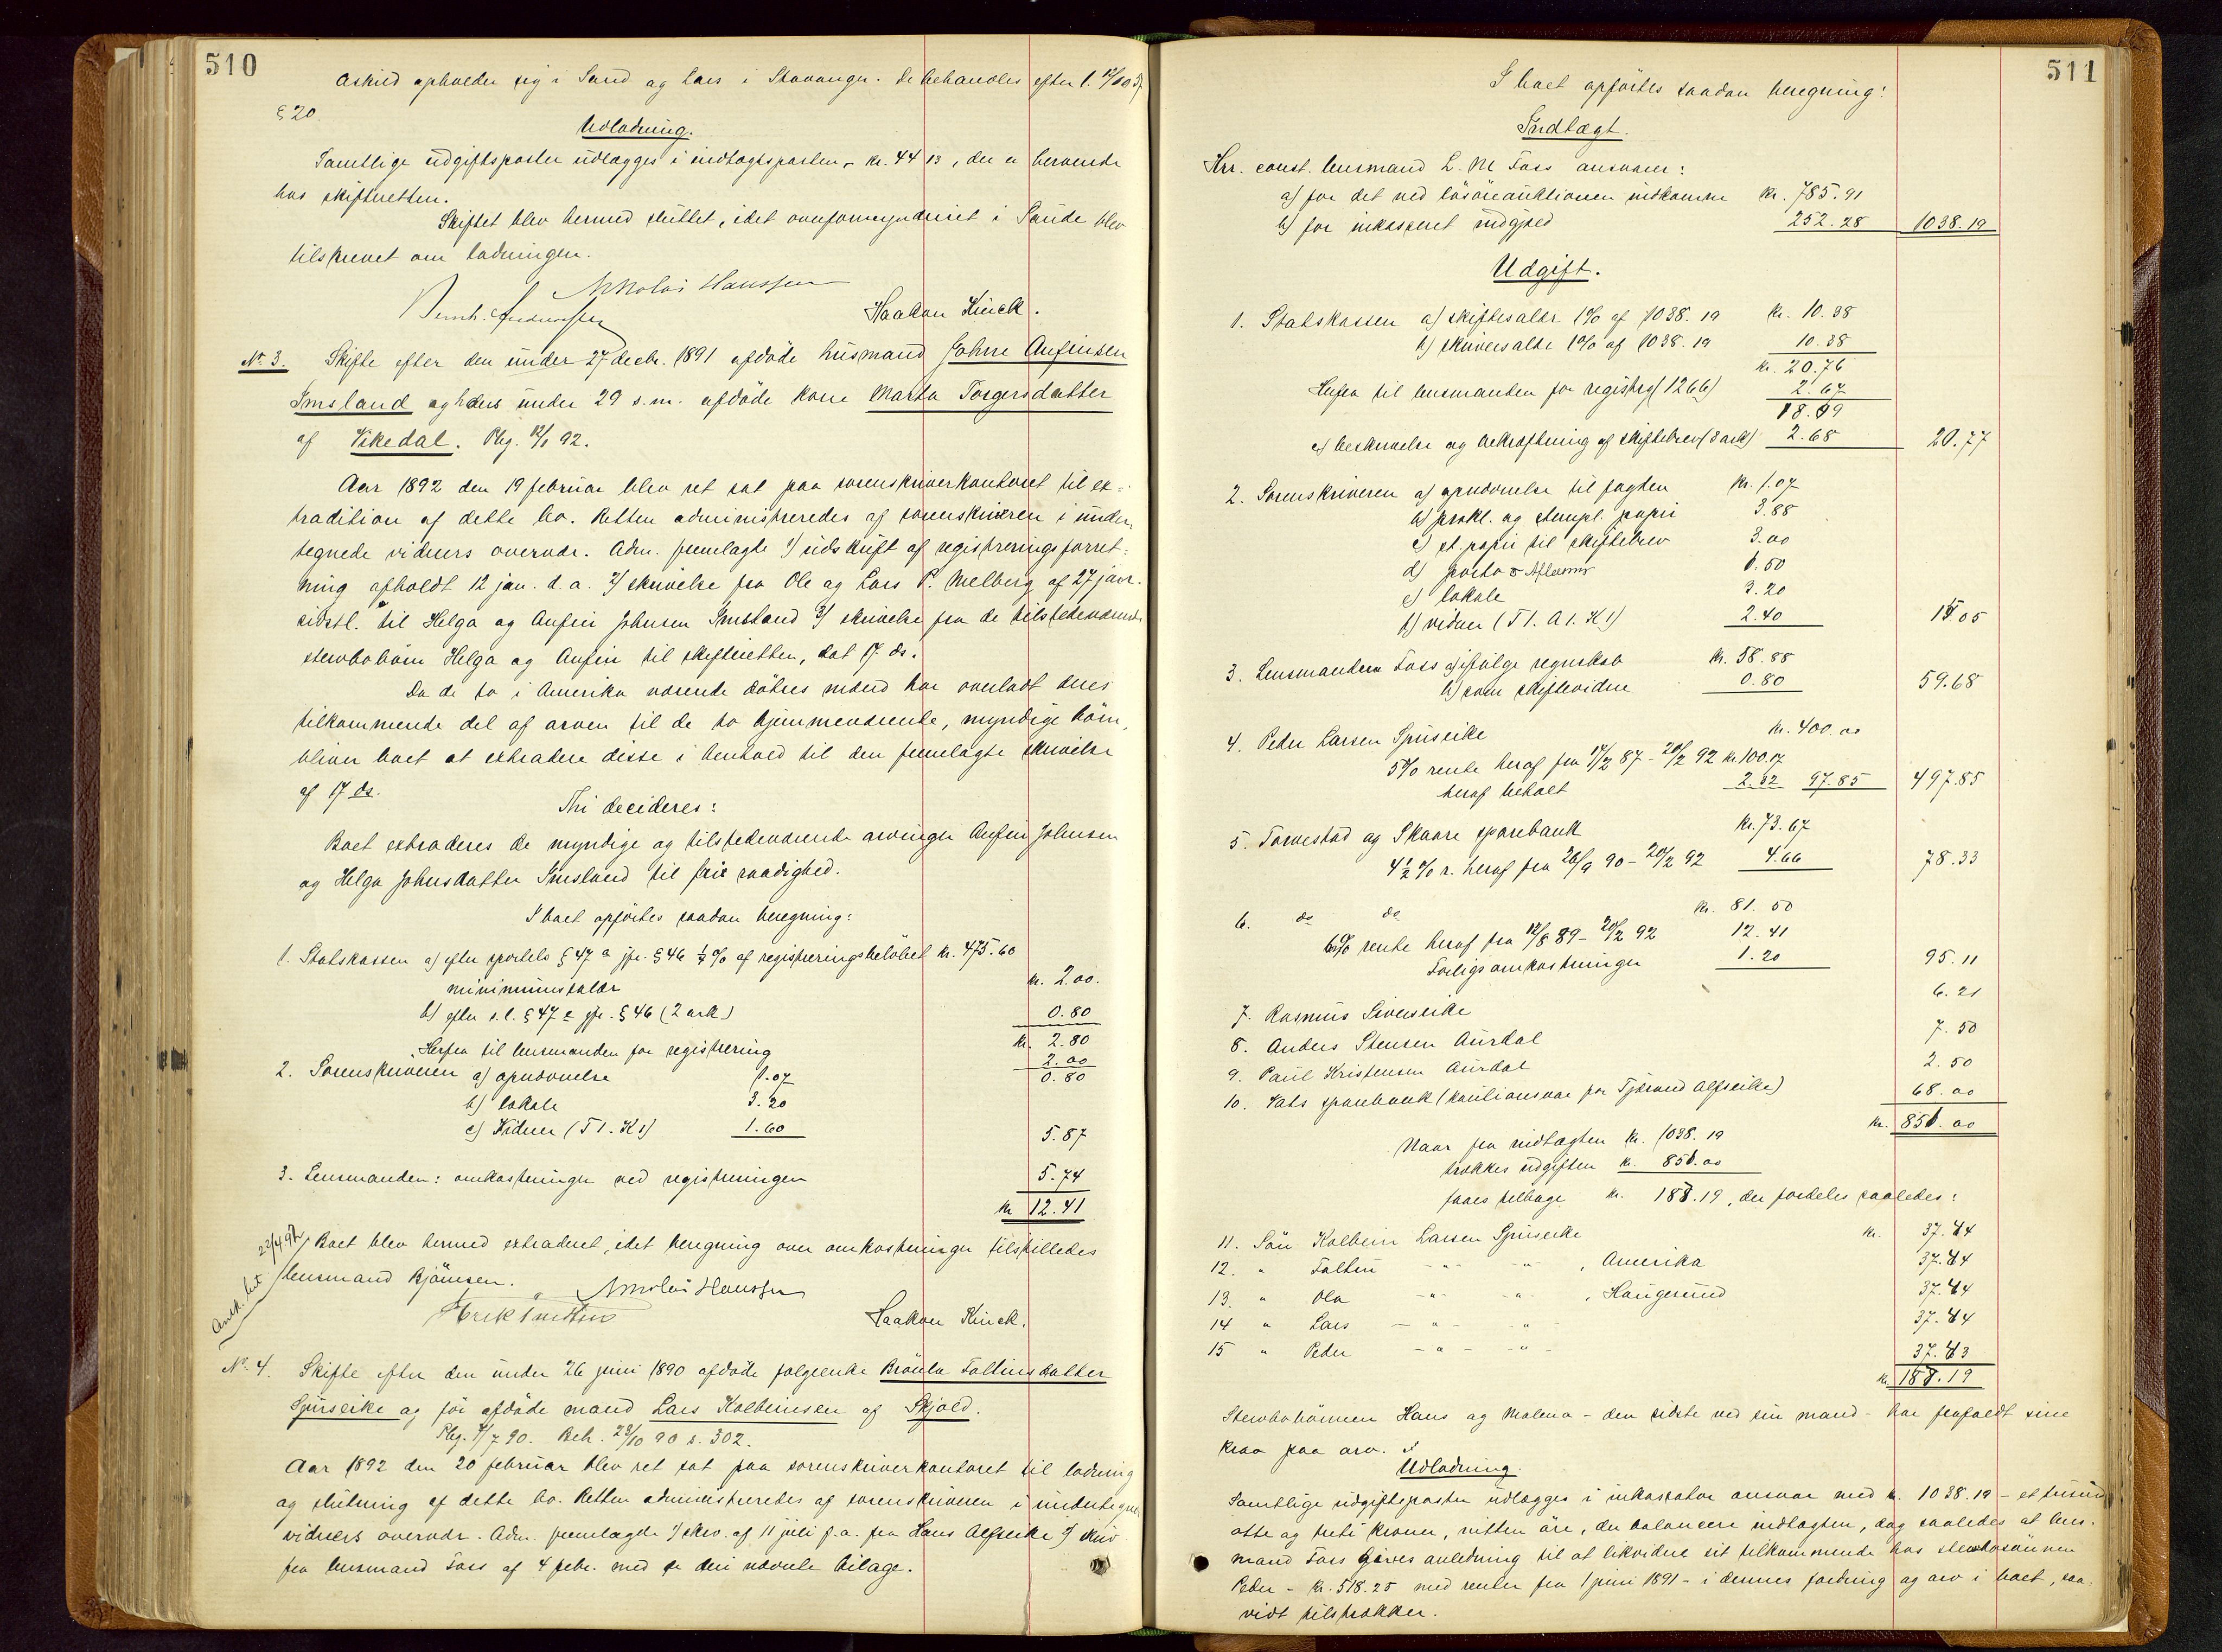 510
Askild opholder sig i Sand og Lars i Stavanger. De behandles efter l. 12/10 37
§ 20
Udlodning.
Samtlige udgiftsposter udlægges i indtægtsposten, kr. 44 13, der er beroende
hos skifteretten.
Skiftet blev hermed sluttet, idet overformynderiet i Sande blev
tilskrevet om lodningen.
Nikolai Hanssen
Haakon Kinck.
No 3. Skifte efter den under 27 decbr. 1891 afdøde husmand Johne Anfinsen
Imsland og hans under 29 s.m. afdøde kone Marta Torgersdatter
af Vikedal. Phg. 12/1 92.
Aar 1892 den 19 februar blev ret sat paa sorenskriverkontoret til ex-
tradition af dette bo. Retten administreredes af sorenskriveren i under-
tegnede vidners overvær. Adm. fremlagte 1) udskrift af registreringsforret-
ning afholdt 12 jan. d.a. 2) skrivelse fra Ole og Lars P. Melberg af 27 janr.
sidstl. til Helga og Anfin Johnsen Imsland 3) skrivelse fra de tilstedeværende
stervbobörn Helga og Anfin til skifteretten, dat 17 ds.
Da de to i Amerika værende døtres mænd har overladt deres
tilkommende del af arven til de to hjemmeværende, myndige börn,
bliver boet at extradere disse i henhold til den fremlagte skrivelse
af 17 ds.
Thi decideres:
Boet extraderes de myndige og tilstedeværende arvinger Anfin Johnsen
og Helga Johnsdatter Imsland til fri raadighed.
I boet opførtes saadan beregning:
1. Statskassen a) efter sportels § 47 a jfr. § 46 ¼ % af registreringsbeløbet kr. 475.60
minimumstaler kr. 2.00.
b) efter s.l. § 47 c jfr. § 46 (2 ark) 0.80
kr. 2.80
Herfra til lensmanden for registrering 2.00
0.80
2. Sorenskriveren a) opnævnelse 1.07
b) lokale 3.20
c) Vidner (T 1. K 1) 1.60 5.87
3. Lensmanden: omkostninger ved registreringen 5.74
kr 12.41
Boet blev hermed extraderet, idet beregning over omkostninger tilstilledes
lensmand Bjönsen.
22/4 92
Nikolai Hanssen
Haakon Kinck.
No. 4. Skifte efter den under 26 juni 1890 afdøde folgeenke Brönla Faltinsdatter
Spirseike og før afdøde mand Lars Kolbeinsen af Skjold.
Phg. 7/7 90. Beh. 23/10 90 s. 302.
Aar 1892 den 20 februar blev ret sat paa sorenskriverkontoret til lodning
og slutning af dette bo. Retten administreredes af sorenskriveren i undertegnede
vidners overvær. Adm. fremlagde 1) skr. af 11 juli f.a. fra Hans Alfseike 2) skriv
fra lensmand Foss af 4 febr. med de deri nævnte bilage.
511
I boet opførtes saadan beregning:
Indtægt.
Hrr. const. lensmand L. M Foss ansvarer:
a) for det ved løsøreauktionen indkomne kr. 785.91
b) for inkasseret indgjæld 252.28 1038.19
Udgift.
1. Statskassen a) skiftesalær 1% af 1038.19 kr. 10.38
b) skriversalær 1% af 1038.19 10.38
kr. 20.76
Herfra til lensmanden for registrg (1266) 2.67
18.09
c) beskrivelse og bekræftning af skiftebrev (3 ark) 2.68 20.77
2. Sorenskriveren a) opnævnelse til fagten kr. 1.07
b) prokl. og stempl. papir 3.88
c) st. papir til skiftebrev 3.00
d) porto 1.50
e) lokale 3.20
f) vidner (T 1. A 1. K 1) 2.40 15.05
3. Lensmanden Foss a) ifølge regnskab kr. 58.88
b) som skiftevidne 0.80 59.68
4. Peder Larsen Spirseike kr. 400.00
5% rente heraf fra 17/2 87 - 20/2 92 kr. 100.17
heraf betalt 2.32 97.85 497.85
5. Torvestad og Skaare sparebank kr. 73.67
4½ % r. heraf fra 26/9 90 - 20/2 92 4.66 78.33
6. do do kr. 81.50
6% rente heraf fra 12/8 89 - 20/2 92 12.41
Forligsomkostninger 1.20 95.11
7. Rasmus Siverseike 6.21
8. Anders Stensen Aurdal 7.50
9. Paul Kristensen Aurdal 2.50
10. Vats sparebank (kautionsvar for Tjerand Alfseike) 68.00
kr. 851.00
Naar fra indtægten kr. 1038.19
trækkes udgiften kr. 851.00
faaes tilbage kr. 187.19, der fordeles saaledes:
11. Søn Kolbein Larsen Spirseike kr. 37.44
12. " Faltin -"- -"-, Amerika 37.44
13. " Ola -"- -"-, Haugesund 37.44
14 " Lars -"- -"- 37.44
15 " Peder -"- -"- 37.43
kr. 187.19
Stervbobörnene Hans og Malena - den sidste ved sin mand - har frafaldt sine
krav paa arv.
Udlodning.
Samtlige udgiftsposter udlægges i inkassator ansvar med kr. 1038.19 - et tusind
otte og treti kroner, nitten øre, der balancere indtægten, dog saaledes at lens-
mand Foss gives anledning til at likvidere sit tilkommende hos stervbosønnen
Peder - kr. 518.25 med renter fra 1 juni 1891 - i dennes fordring og arv i boet, saa
vidt tilstrækker.